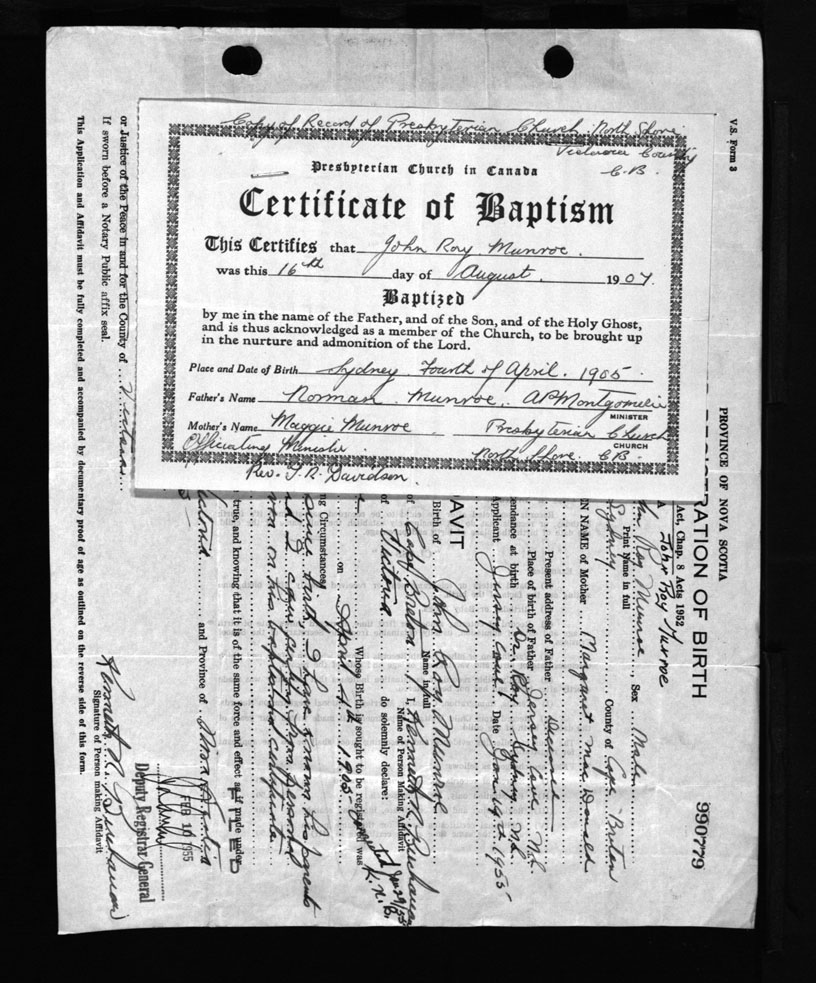 Copy of Record of Presbyterian Church North Shore
Victoria County
C.B.
Presbyterian Church in Canada
Certificate of Baptism
This Certifies that John Roy Munroe.
was this 16th day of August. 1907.
Baptized
by me in the name of the Father, and of the Son, and of the Holy Ghost,
and is thus acknowledged as a member of the Church, to be brought up
in the nurture and admonition of the Lord.
Place and Date of Birth Sydney Fourth of April. 1905
Father's Name Norman Munroe. A P Montgomerie
MINISTER
Mother's Name Maggie Munroe Presbyterian Church
CHURCH
Officiating Minister North Shore. C.B.
Rev. J. R. Davidson.
V.S. Form 3
PROVINCE OF NOVA SCOTIA
990779
REGISTRATION OF BIRTH
Act, Chap. 8 Acts 1952
John Roy Munroe
John Roy Munroe, Sex Male
Print Name in full
Sydney County of Cape Breton
EN NAME of Mother Margaret MacDonald
Present address of Father Deceased
Place of birth of Father Jersey Cove N.S.
endance at birth Dr. Roy Sydney N.S.
Applicant Jersey Cove Date Jan 19th 1955
DAVIT
Birth of John Roy Munroe
Name in full
of Cape Breton I, Kenneth R. Buchanan
Name of Person Making Affidavit
of Victoria do solemnly declare:
Jan 29/55
K. R. B.
Whose Birth is sought to be registered was
on April 4th 1905
ng Circumstances
since birth, I have known his parents
and I
on his baptismal certificate
true, and knowing that it is of the same force and effect as if made under
FILED
Victoria and Province of Nova Scotia
FEB 10 1955
Deputy Registrar General
Kenneth R. Buchanan
Signature of Person making Affidavit
or Justice of the Peace in and for the County of Victoria
If sworn before a Notary Public affix seal.
This Application and Affidavit must be fully completed and accompanied by documentary proof of age as outlined on the reverse side of this form.